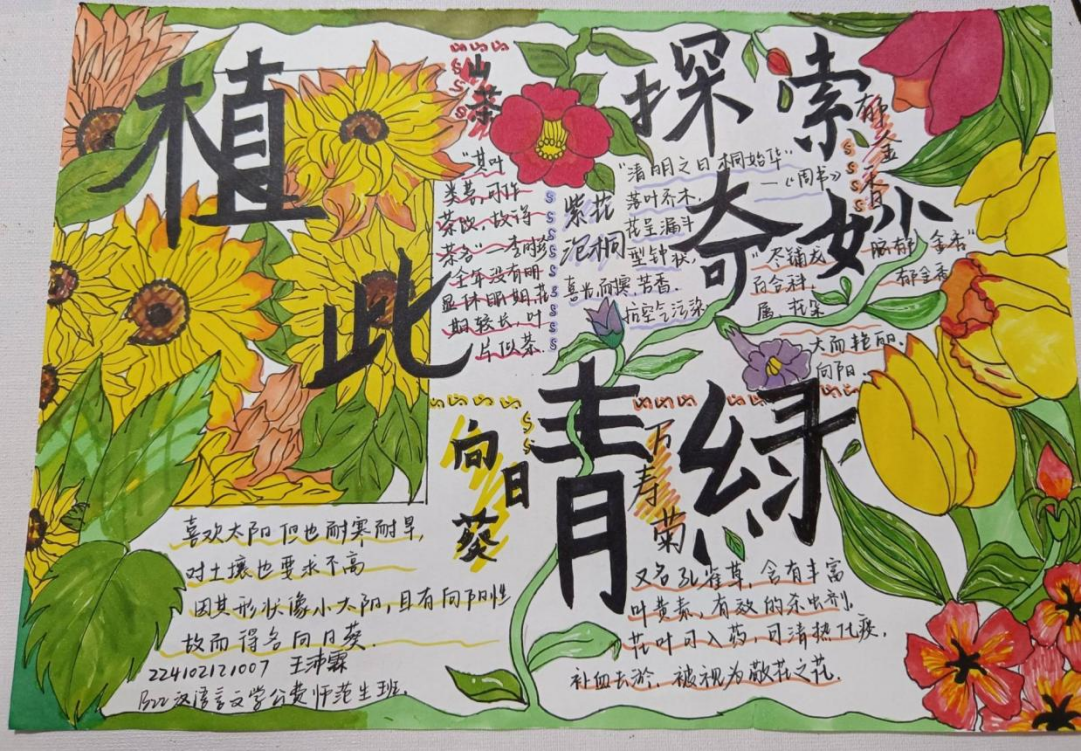 植此青绿
探索奇妙
山茶
"其叶
类茗,可作
茶饮,故得
茶名"李时珍
全年没有明
显休眠期,花
期较长,叶
片似茶.
紫花
泡桐
"清明之日桐始华"
—《周书》
落叶乔木,
花呈漏斗
型钟状,
喜光而
苦香.
抗空气污染
郁金香
郁金香
百合科,
属 花朵
大而艳丽.
向阳.
向日葵
喜欢太阳但也耐寒耐旱,
对土壤也要求不高
因其形状像小太阳,且有向阳性
故而得名向日葵.
224102121007 王沛霖
B22汉语言文学公费师范生班.
万寿菊
又名孔雀草,含有丰富
叶黄素,有效的杀虫剂.
花叶可入药,可清热化痰,
补血去淤,被视为敬花之花.